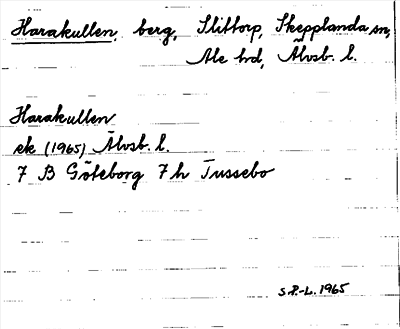 Harakullen, berg, Slittorp, Skepplanda sn,
Ale hd, Älvsb. l.
Harakullen
ek (1965) Älvsb. l.
7 B Göteborg 7 h Tussebo
S.P.-L. 1965